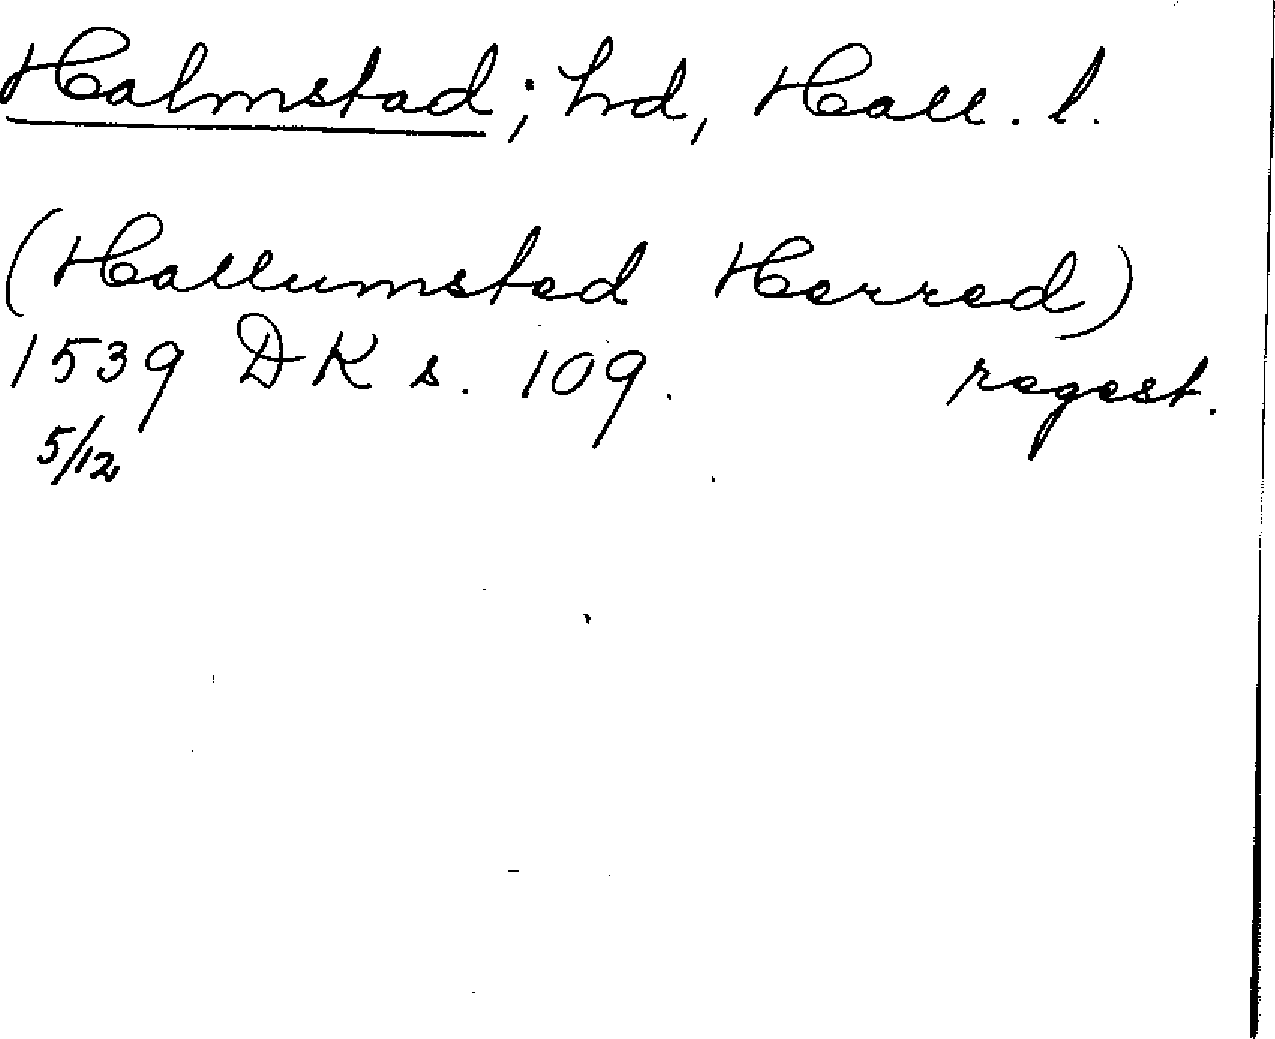 Halmstad; hd, Hall. l.
(Hallumsted Herred)
1539 DK s. 109. regest.
5/12